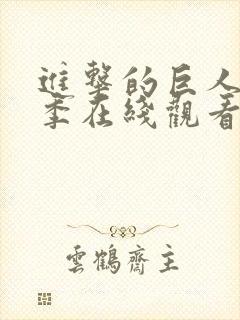 進擊的巨人
季在綫觀看
雲鶴齋主